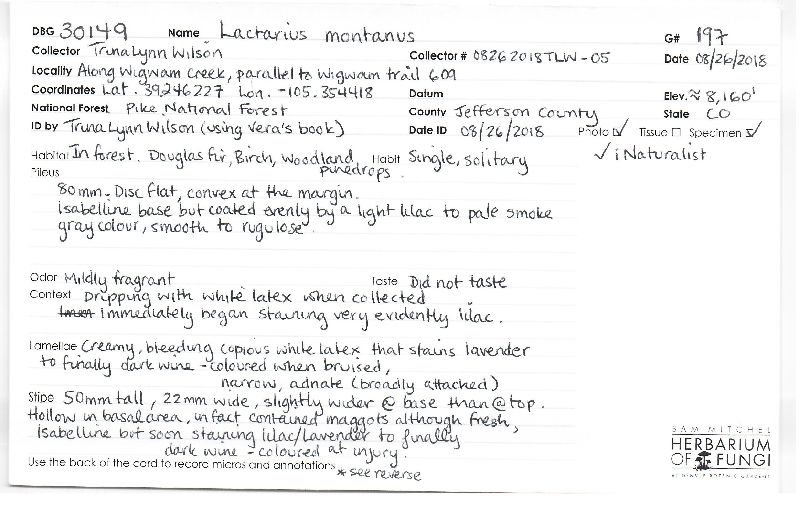 DBG 30149 Name Lactarius montanus G# 197
Collector TrinaLynn Wilson Collector# 08262018TLW-05 Date 08/26/2018
Locality Along Wigwam Creek, parallel to Wigwam trail 609
Coordinates Lat. 39.246227 Lon. -105.354418 Datum Elev. ≈ 8,160'
National Forest Pike National Forest County Jefferson County State CO
ID by TrinaLynn Wilson (using Vera's book) Date ID 08/26/2018 Photo ☑ Tissue ☐ Specimen ☑
Habitat In forest. Douglas fir, Birch, Woodland pinedrops. Habit Single, solitary ✓ iNaturalist
Pileus
80mm - Disc flat, convex at the margin.
Isabelline base but coated evenly by a light lilac to pale smoke
gray colour, smooth to rugulose
Odor Mildly fragrant Taste Did not taste
Context Dripping with white latex when collected
immediately began staining very evidently lilac.
Lamellae Creamy, bleeding copious white latex that stains lavender
to finally dark wine-coloured when bruised,
narrow, adnate (broadly attached)
Stipe 50mm tall, 22mm wide, slightly wider @ base than @ top.
Hollow in basal area, in fact contained maggots although fresh,
Isabelline but soon staining lilac/lavender to finally
dark wine-coloured at injury.
Use the back of the card to record micros and annotations *see reverse
SAM MITCHEL
HERBARIUM
OF FUNGI